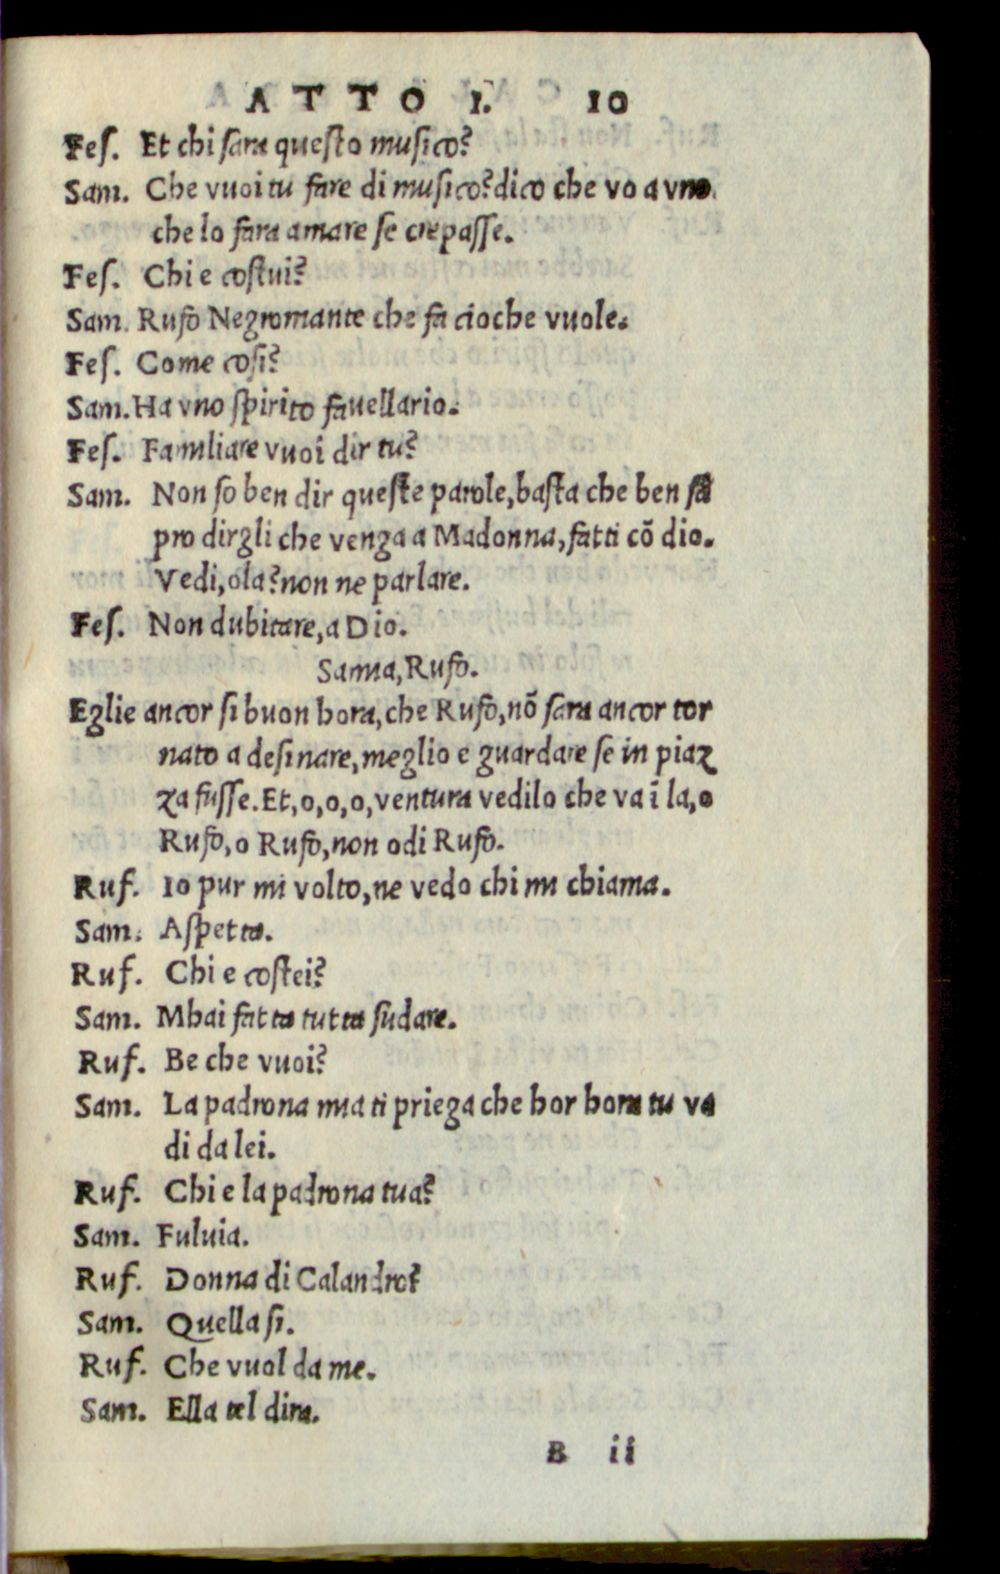 ATTO I. 10
Feſ. Et chi ſara queſto muſico?
Sam. Che vuoi tu fare di muſico? dico che vo a vno
che lo fara amare ſe crepaſſe.
Feſ. Chi e coſtui?
Sam. Rufo Negromante che fa cioche vuole.
Feſ. Come coſi?
Sam. Ha vno ſpirito fauellario.
Feſ. Familiare vuoi dir tu?
Sam. Non ſo ben dir queſte parole, baſta che ben ſa
pro dirgli che venga a Madonna, fatti cō dio.
Vedi, ola? non ne parlare.
Feſ. Non dubitare, a Dio.
Samia, Rufo.
Eglie ancor ſi buon hora, che Rufo, nō ſara ancor tor
nato a deſinare, meglio e guardare ſe in piaz
za fuſſe. Et, o, o, o, ventura vedilo che va ī la, o
Rufo, o Rufo, non odi Rufo.
Ruf. Io pur mi volto, ne vedo chi mi chiama.
Sam. Aſpetta.
Ruf. Chi e coſtei?
Sam. Mhai fatta tutta ſudare.
Ruf. Be che vuoi?
Sam. La padrona mia ti priega che hor hora tu va
di da lei.
Ruf. Chi e la padrona tua?
Sam. Fuluia.
Ruf. Donna di Calandro?
Sam. Quella ſi.
Ruf. Che vuol da me.
Sam. Ella tel dira.
B ii